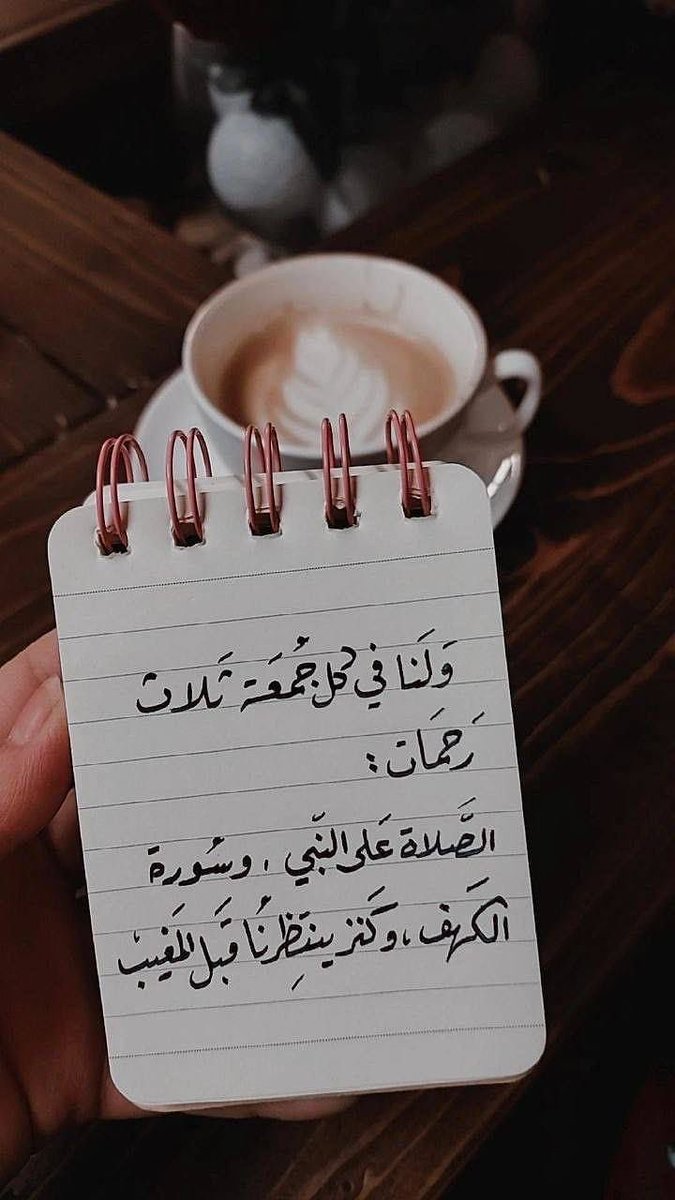 وَلَنا في كل جُمعَة ثَلاث
رَحمَات :
الصَّلاة عَلى النّبي ، وسُورة
الكَهف ، وكَنز ينتَظِرنُا قَبل المَغيب